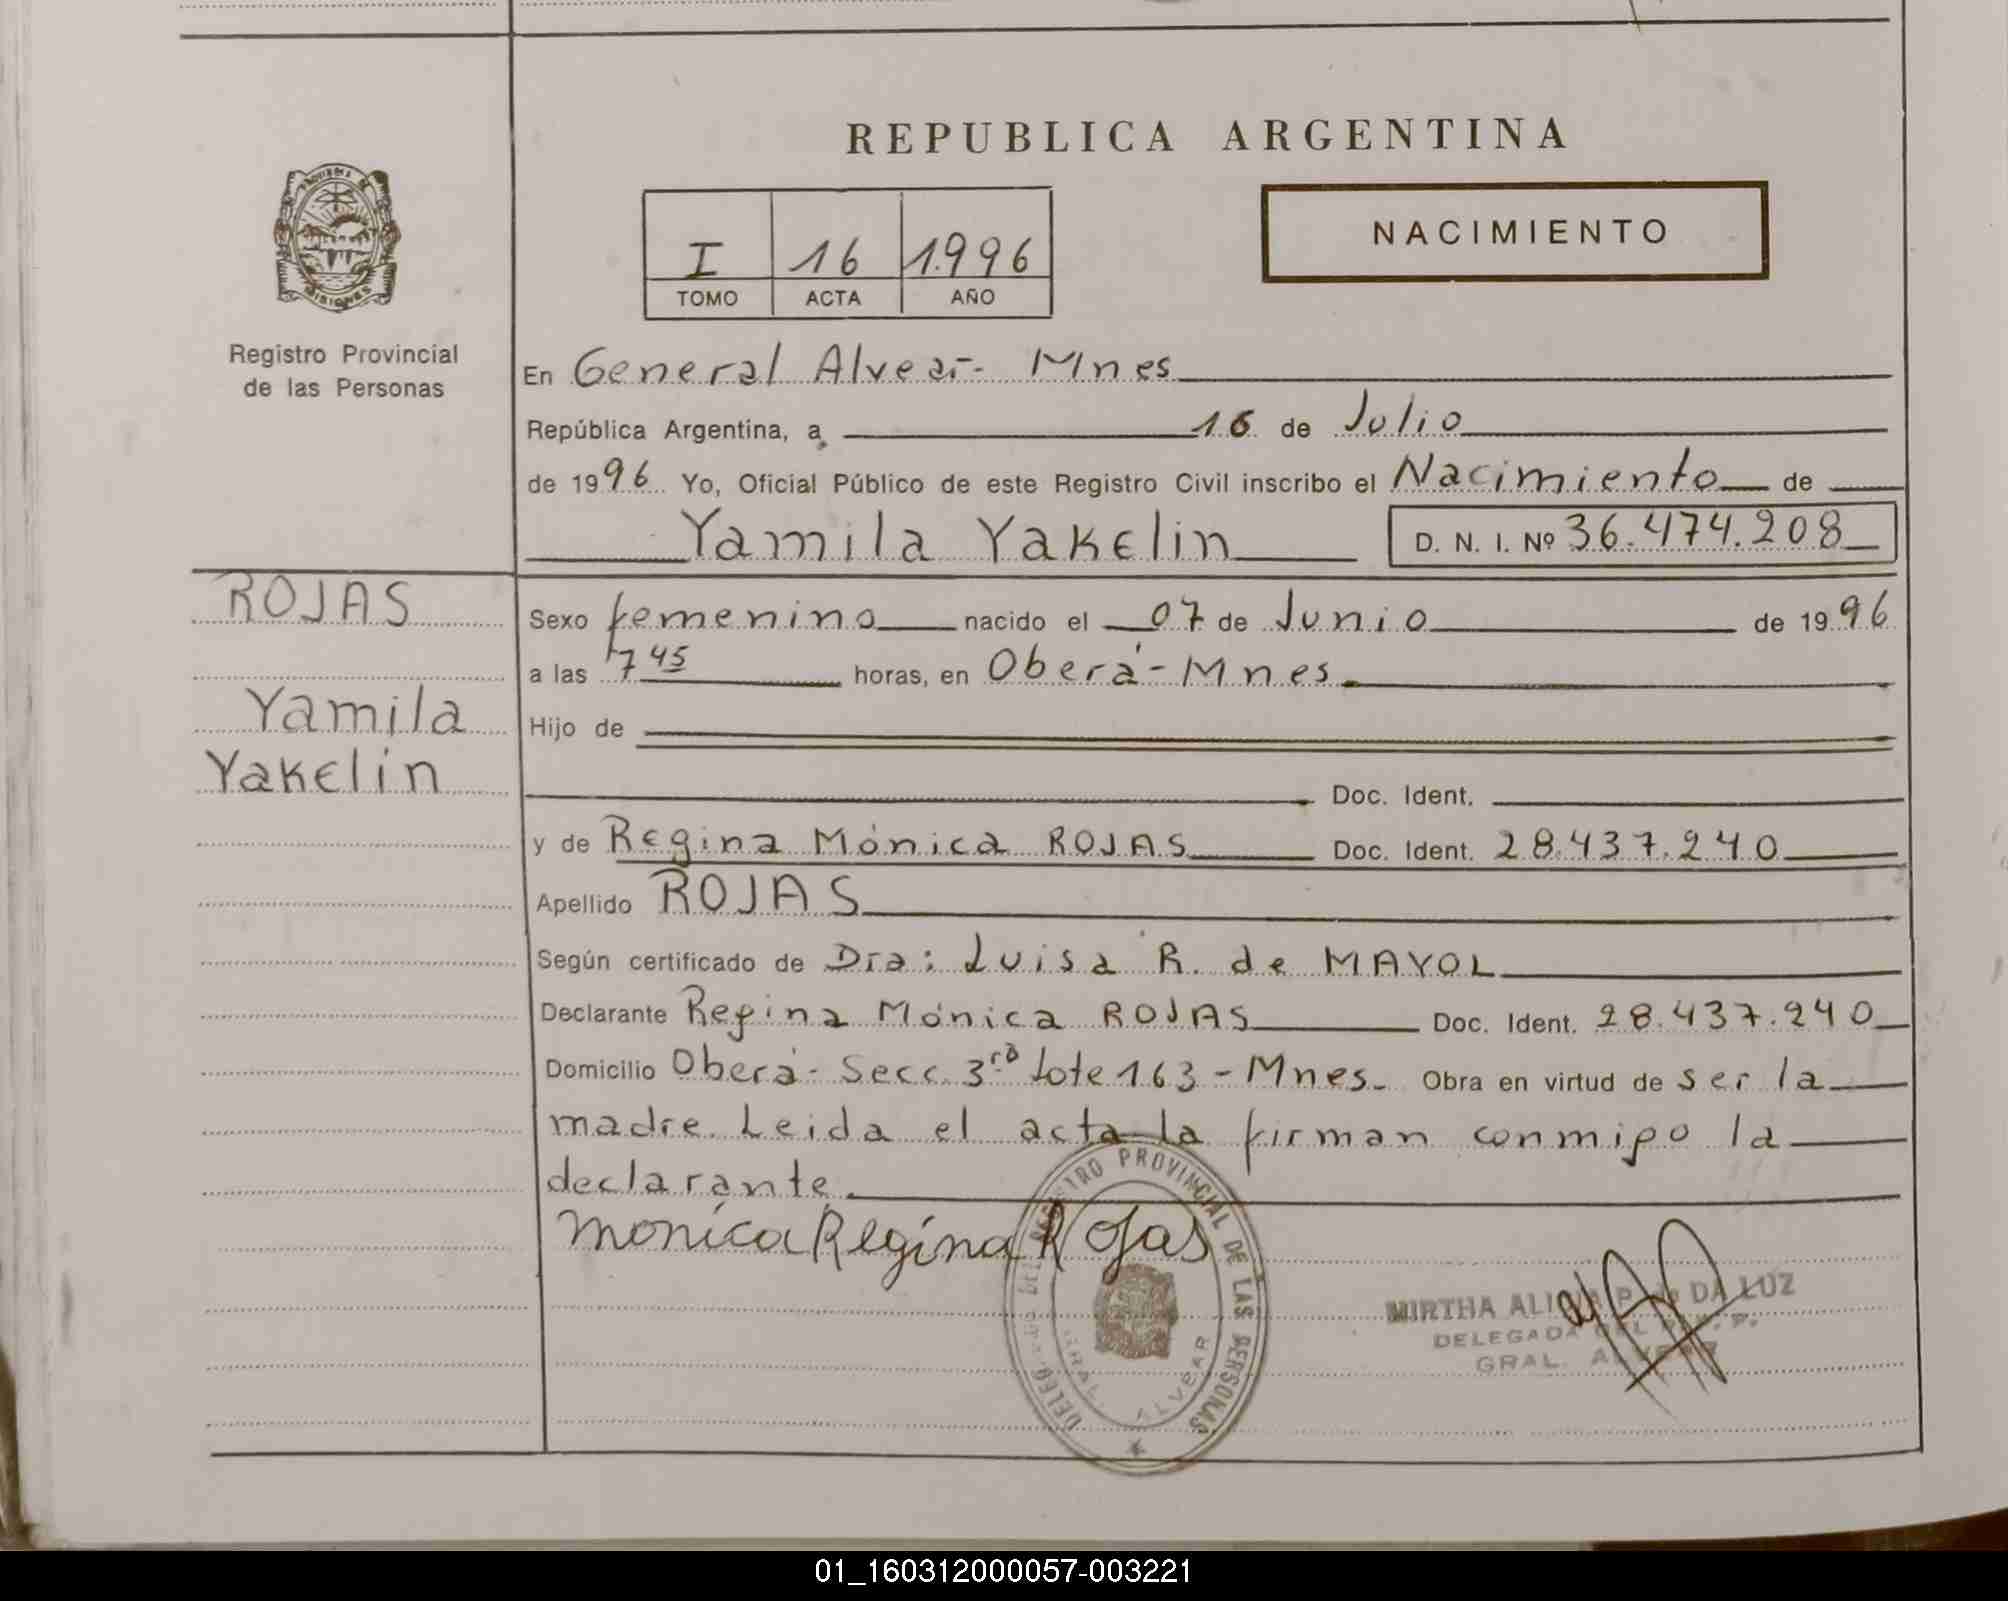 REPUBLICA ARGENTINA
PROVINCIA DE MISIONES
Registro Provincial
de las Personas
I 16 1.996
TOMO ACTA AÑO
NACIMIENTO
En General Alvear - Mnes
República Argentina, a 16 de Julio
de 1996 Yo, Oficial Público de este Registro Civil inscribo el Nacimiento de
Yamila Yakelin D. N. I. Nº 36.474.208
ROJAS
Yamila
Yakelin
Sexo femenino nacido el 07 de Junio de 1996
a las 7 45 horas, en Oberá - Mnes
Hijo de
Doc. Ident.
y de Regina Mónica ROJAS Doc. Ident. 28.437.240
Apellido ROJAS
Según certificado de Dra: Luisa R. de MAYOL
Declarante Regina Mónica ROJAS Doc. Ident. 28.437.240
Domicilio Oberá - Secc. 3ra Lote 163 - Mnes. Obra en virtud de ser la
madre. Leida el acta la firman conmigo la
declarante.
Monica Regina Rojas
REGISTRO PROVINCIAL DE LAS PERSONAS
GRAL. ALVEAR
MIRTHA ALICIA P. de DA LUZ
DELEGADA DEL P.
GRAL. ALVEAR
01_160312000057-003221